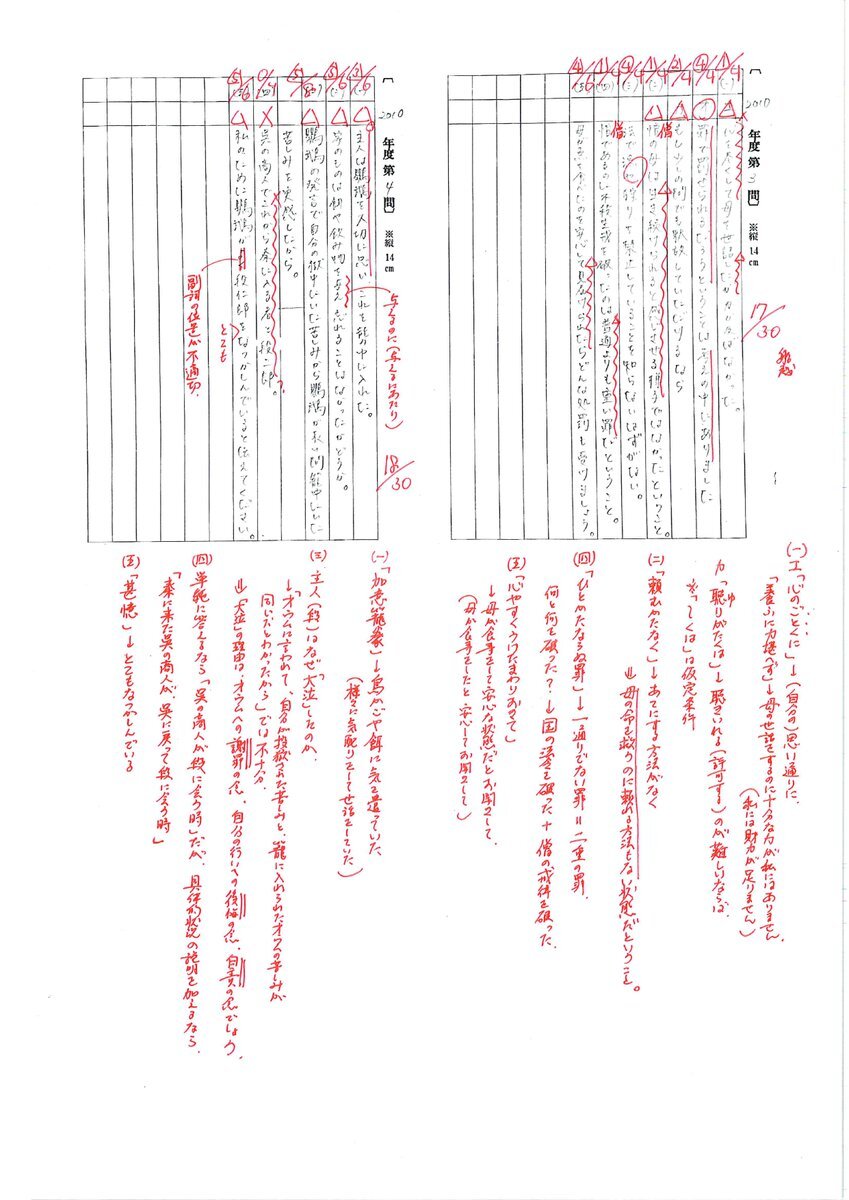 2010 年度 第 3 問 ※縦 14 cm
17/30
1/4
4/4
2/4
1/4
4/4
1/4
4/6
心を尽くして母を世話したかなければなかった。
罪で罰せられるだろうということは考えの中にありました
もし少しの間でも
僧
の母は生き続けられると感じさせる様子ではなかったということ。
法で
狩りを禁止していることを知らないはずがない。
僧
であるのに不殺生戒を破ったのは普通よりも重い罪だということ。
母が魚を食べたのを安心して見届けられたらどんな処罰も受けましょう。
(一)エ「心のごとくに」→(自分の)思い通りに
「養ふに力堪へず」→母の世話をするのに十分な力が私にはありません
(私には財力が足りません)
カ「聴りがたくは」→聴き入れる(許可する)のが難しいならば
ゆ
※「〜しくは」は仮定条件
(二)「頼むかたなく」→あてにする方法がなく
⇒母の命を救うのに頼れる方法もない状態だということ。
(四)「ひとかたならぬ罪」→一通りでない罪=二重の罪
何と何を破った?→国の法を破った+僧の戒律を破った
(五)「心やすくうけたまわりおきて」
→母が食事をして安心な状態だとお聞きして
(母が食事をしたと安心してお聞きして)
2010 年度 第 4 問 ※縦 14 cm
18/30
3/6
5/6
5/8
0/4
5/6
主人は鸚鵡を大切に思い、これを籠の中に入れた。
家のものは餌や飲み物を与え忘れることはなかったかどうか。
与えるのに(与えるにあたり)
鸚鵡の発言で自分の獄中にいた苦しみから鸚鵡が長い間籠中にいた
苦しみを実感したから。
呉の商人でこれから秦に入る者に段二郎。
私のために鸚鵡が段仁郎をなつかしんでいると伝えてください。
とても
副詞の位置が不適切.
(一)「加意籠養」→鳥かごや餌に気を遣っていた
(様々に気配りをして世話をしていた)
(三)主人(段)はなぜ「大泣」したのか.
→「オウムに言われて、自分が投獄された苦しみと、籠に入れられたオウムの苦しみが
同じだとわかったから」では不十分.
⇒「大泣」の理由は、オウムへの謝罪の念、自分の行いへの後悔の念、自責の念でしょう
(四)単純に答えるなら「呉の商人が段に会う時」だが、具体的状況の説明を加えるなら、
「秦に来た呉の商人が、呉に戻って段に会う時」
(五)「甚憶」→とてもなつかしんでいる